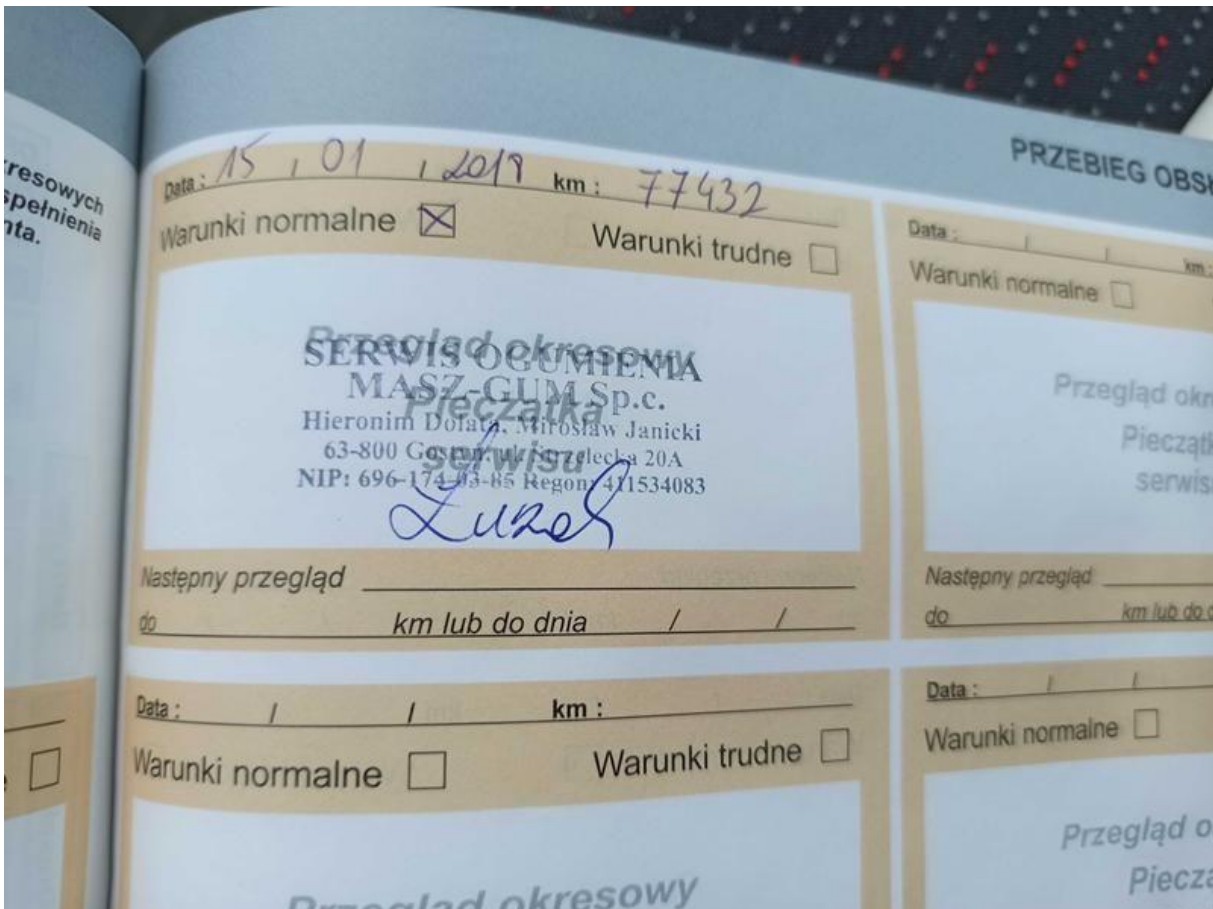 resowych
spełnienia
nta.
PRZEBIEG OBSŁ
Data : 15 / 01 / 2019 km : 77432
Warunki normalne
Warunki trudne
Przegląd okresowy
Pieczątka
serwisu
SERWIS OGUMIENIA
MASZ-GUM Sp.c.
Hieronim Dolata, Mirosław Janicki
63-800 Gostyń, ul. Strzelecka 20A
NIP: 696-174-03-85 Regon: 411534083
Następny przegląd
do km lub do dnia / /
Data : / / km :
Warunki normalne
Przegląd okre
Pieczątk
serwis
Następny przegląd
do km lub do d
Data : / / km :
Warunki normalne
Warunki trudne
Przegląd okresowy
Data : / /
Warunki normalne
Przegląd o
Piecza